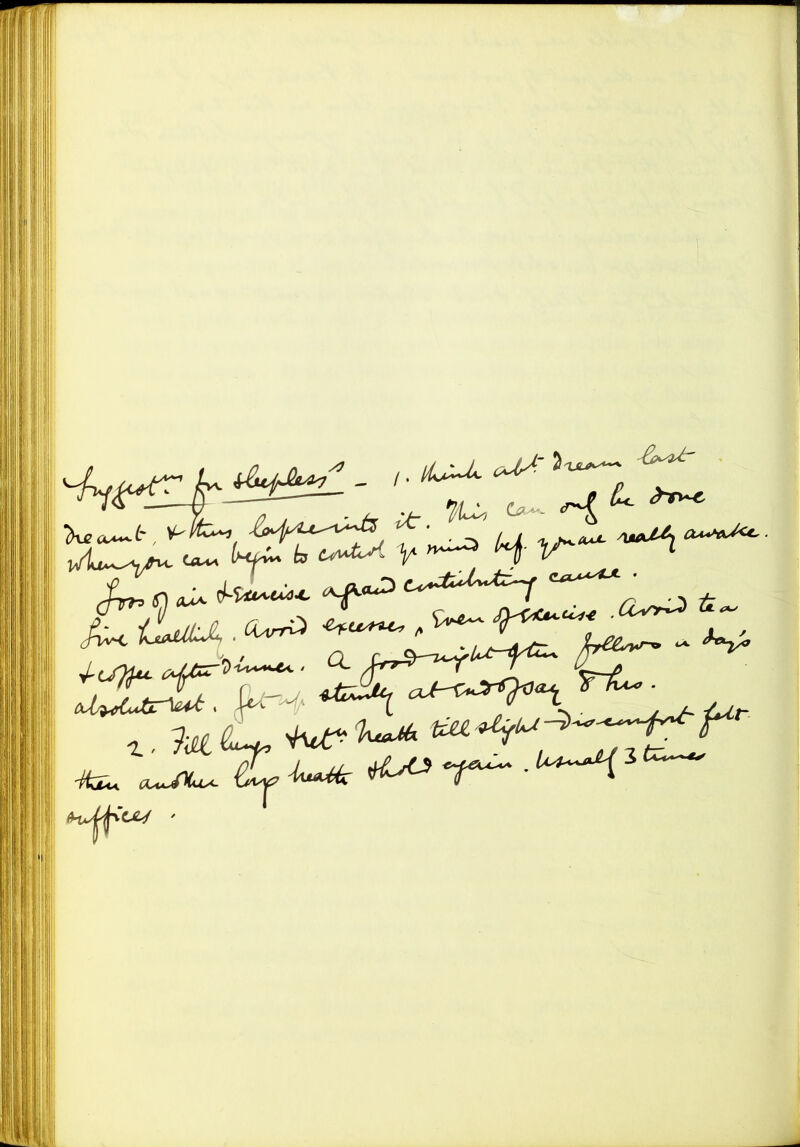 Suggestns for sleeplessn – 1. think abt dream last
dreamt, & thus lapse into it. This can only be done
when you can begin to control yr mind bef. you are really awake.
Loss of air & Exercise a grand contributing cause.
Live healthily. Avoid excesses, Even of Exercise. Avoid tea
& coffee after dinner. A good night often follows a day's
absolute rest. Get up sternly at End of say 8 hrs.
2. Fill lungs & retn breath till slight discomfort felt
then another long breath & hold again. Usually 3 times
suffices.